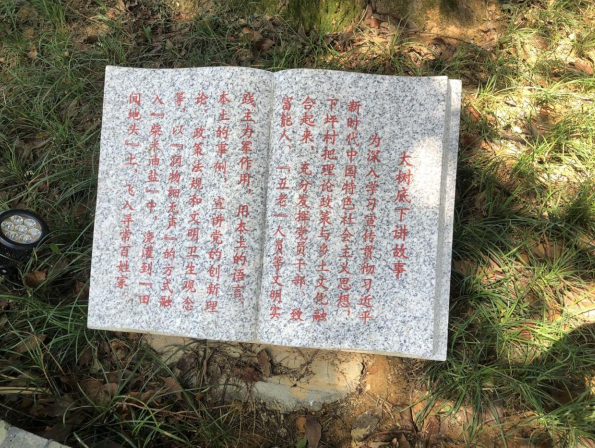 大树底下讲故事
为深入学习宣传贯彻习近平
新时代中国特色社会主义思想，
下坪村把理论政策与乡土文化融
合起来，充分发挥党员干部、致
富能人、“五老”人员等文明实
践主力军作用，用本土的语言、
本土的事例，宣讲党的创新理
论、政策法规和文明卫生观念
等，以“润物细无声”的方式融
入“柴米油盐”中，浇灌到“田
间地头”上，飞入寻常百姓家。